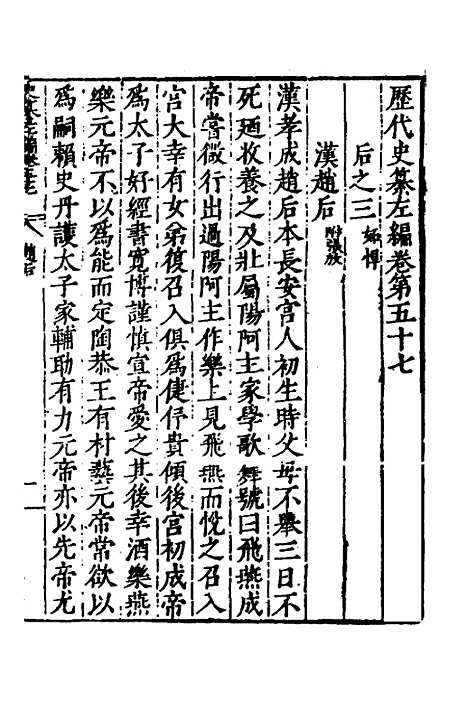 歷代史纂左編卷第五十七
后之三 妬悍
漢趙后 附張放
漢孝成趙后本長安宫人初生時父母不舉三日不
死廼收養之及壯屬陽阿主家學歌舞號曰飛燕成
帝嘗微行出過陽阿主作樂上見飛燕而悅之召入
宫大幸有女弟復召入俱爲倢伃貴傾後宫初成帝
爲太子好經書寛博謹慎宣帝愛之其後幸酒樂燕
樂元帝不以爲能而定陶恭王有材藝元帝常欲以
爲嗣賴史丹護太子家輔助有力元帝亦以先帝尤